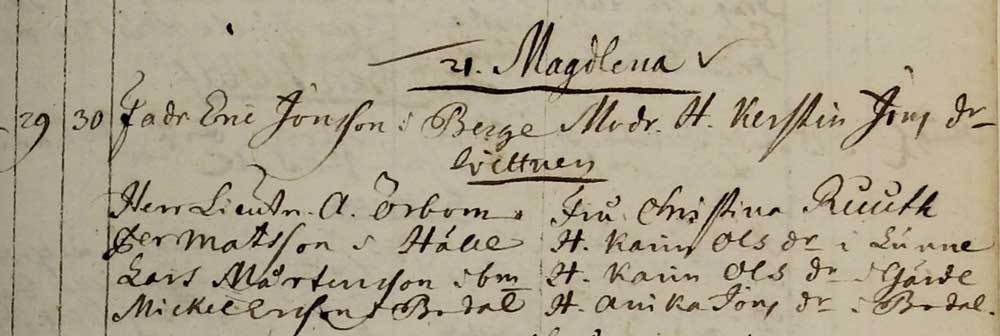 21. Magdlena
29 30 Fadr Eric Jönsson i Berge Modr. H. Kerstin Jöns dr
Wittnen
Herr Lieutn. A. Örbom. Fru Christina Ruuth
Per Matsson i Hålle H. Karin Ols dr i Lünne
Lars Mårtensson ibm H. Karin Ols dr i Gärde
Mickel Ersson i Bredal H. Anika Jöns dr i Bredal.